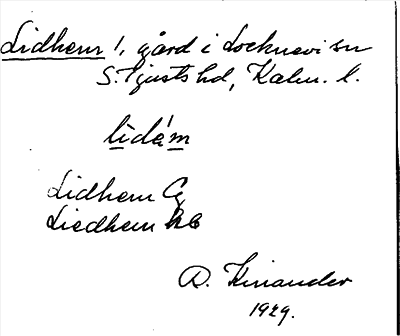 Lidhem 1, gård i Locknevi sn
S. Tjusts hd, Kalm. l.
lidém
Lidhem Cg
Liedhem
R. Kinander
1929.